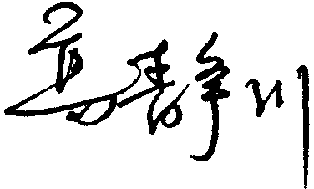 高静川